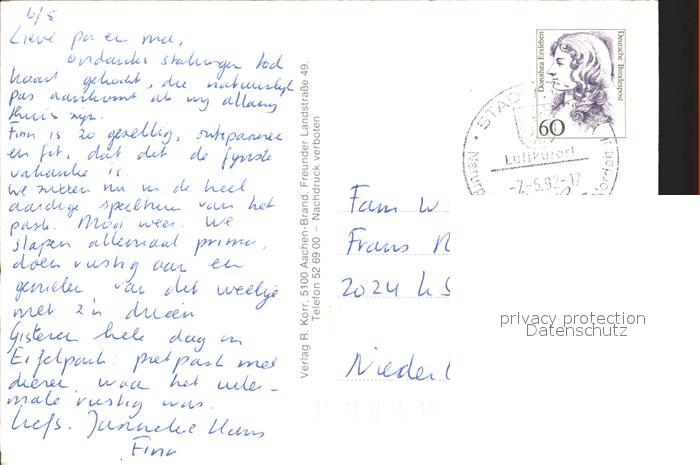 6/5
Lieve pa en ma,
ondanks stakingen toch
kaart gekocht, die natuurlijk
pas aankomt als wij allang
thuis zijn.
Finn is zo gezellig, ontspannen
en fit, dat dit de fijnste
vakantie is.
We zitten nu in de heel
aardige speeltuin van het
park. Mooi weer. We
slapen allemaal prima,
doen rustig aan en
genieten van dit weekje
met z'n drieën
Gisteren hele dag in
Eifelpark: pretpark met
dieren, waar het hele-
male rustig was.
Liefs. Janneke Hans
Finn
Verlag R. Korr, 5100 Aachen-Brand, Freunder Landstraße 49,
Telefon 52 69 00 – Nachdruck verboten
Dorothea Erxleben
Deutsche Bundespost
60
STAD
Luftkurort
-7.-5.92-17
Fam W
Frans
2024 
Nieder
privacy protection
Datenschutz